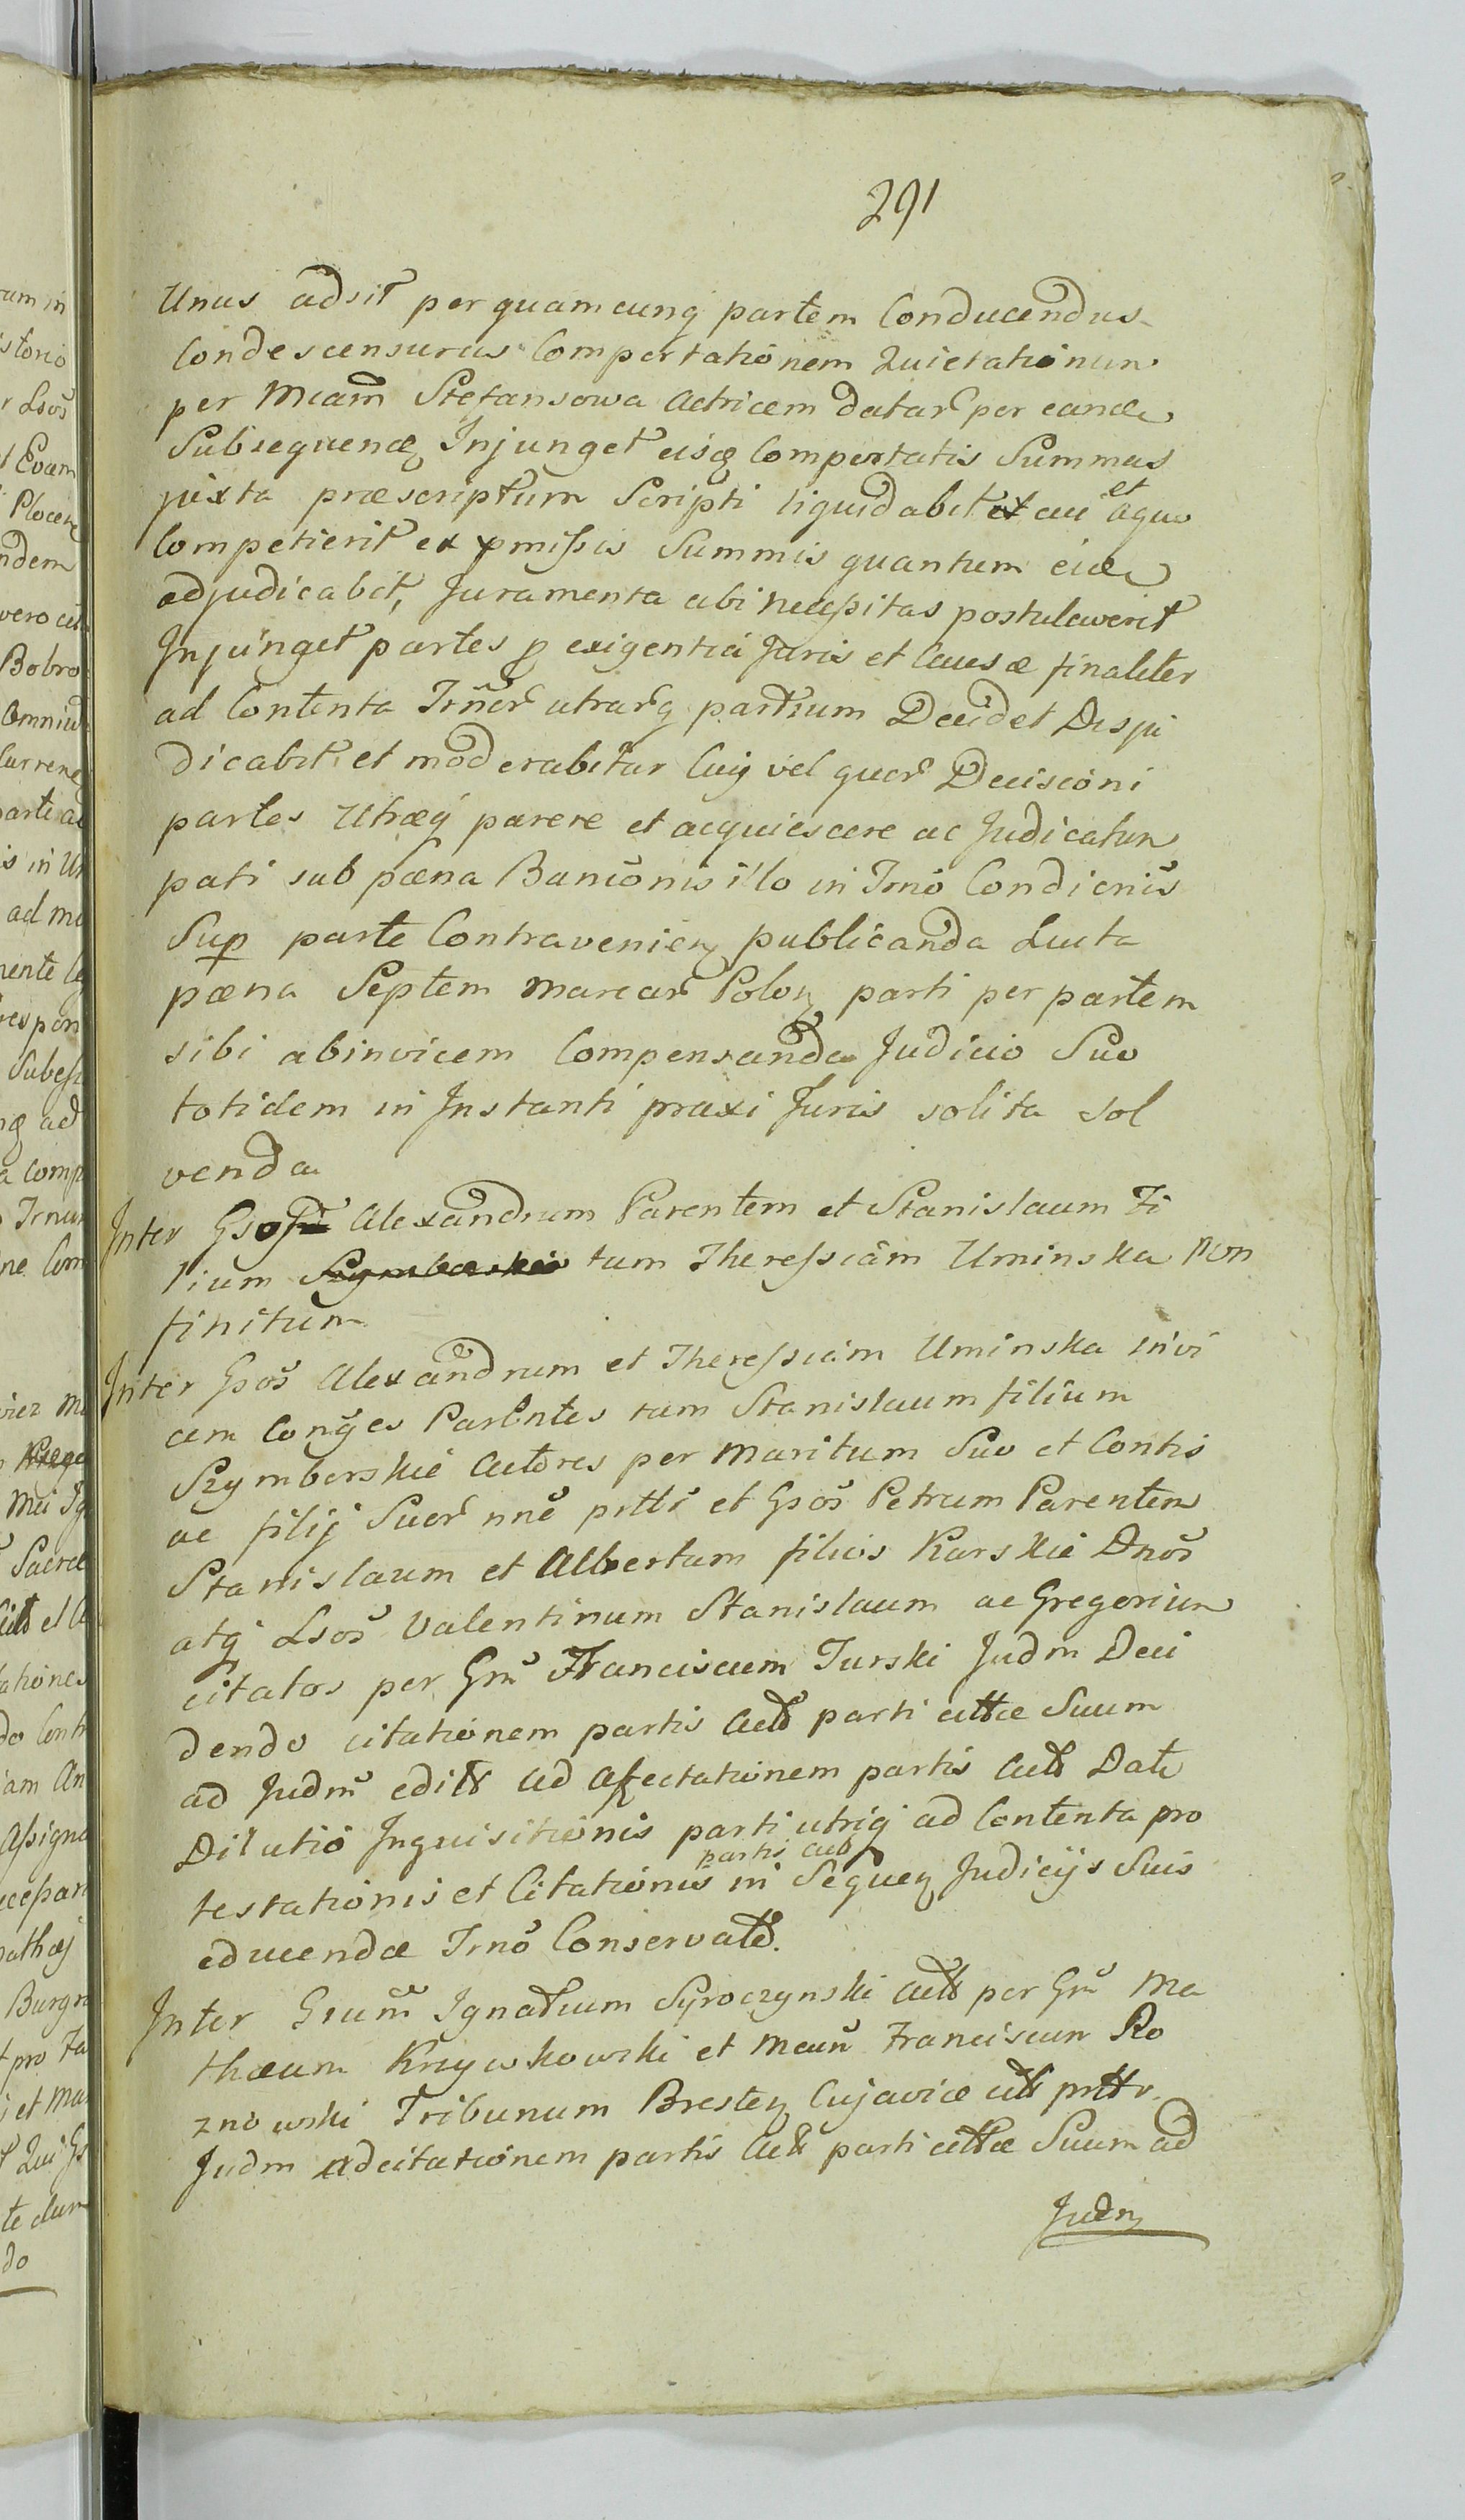 291
Unus adsit per quamcunq partem Conducendus
Condescensurus Comportationem Quietationum
per Mcam Stefansowa Actricem datar per eande
Subsequenq Injunget eisq Comportatis Summas
juxta præscriptum Scripti liquidabit et cui et aquo
Competierit ex pmissis Summis quantum eide
adjudicabit, Juramenta ubi necessitas postulaverit
Injunget partes p exigentia Juris et Causæ finaliter
ad Contenta Trnor utrarq partium Decidet Disju
dicabit et moderabitur Cuig vel quor Decisioni
partes Utræq parere et acquiescere ac Judicatum
pati sub pæna Banionis illo in Trno Condicnis
Sup parte Contravenien publicanda Lucta
pæna Septem marcar Polon parti per partem
sibi abinvicem Compensanda Judicio Suo
totidem in Instanti praxi Juris solita Sol
venda
Inter Gsos Alexandrum Parentem et Stanislaum Fi
lium Szymborskie tum Theressiam Uminska Non
finitum
Inter Gsos Alexandrum et Theressiam Uminska invi
cem Conges Parentes tum Stanislaum filium
Szymborskie Actores per Maritum Suo et Contis
ac filij Suor nne pntti et Gsos Petrum Parentem
Stanislaum et Albertum filios Karskie Dnos
atq Lsos Valentinum Stanislaum ac Gregorium
citatos per Gm Franciscum Turski Judm Deci
dendo citationem partis Act parti cittæ Suum
ad Judm edit ad Afectationem partis Act Date
Dilatio Inquisitionis parti utriq ad Contenta pro
testationis et Citationis partis act in Sequen Judicijs Suis
educendæ Trno Conservato.
Inter Gsum Ignatium Syroczynski Act per Gm Ma
thæum Krzywkowski et Mcum Franciscum Ro
znowski Tribunum Bresten Cujaviæ citt pntte
Judm adcitationem partis Act parti cittæ Suum ad
Judm